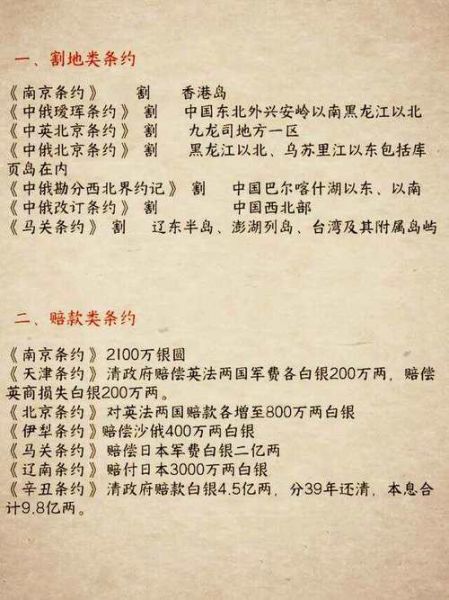 一、割地类条约
《南京条约》 割 香港岛
《中俄瑷珲条约》 割 中国东北外兴安岭以南黑龙江以北
《中英北京条约》 割 九龙司地方一区
《中俄北京条约》 割 黑龙江以北、乌苏里江以东包括库
页岛在内
《中俄勘分西北界约记》 割 中国巴尔喀什湖以东、以南
《中俄改订条约》 割 中国西北部
《马关条约》 割 辽东半岛、澎湖列岛、台湾及其附属岛屿
二、赔款类条约
《南京条约》2100万银圆
《天津条约》清政府赔偿英法两国军费各白银200万两，赔偿
英商损失白银200万两。
《北京条约》对英法两国赔款各增至800万两白银
《伊犁条约》赔偿沙俄400万两白银
《马关条约》赔偿日本军费白银二亿两
《辽南条约》赔付日本3000万两白银
《辛丑条约》清政府赔款白银4.5亿两，分39年还清，本息合
计9.8亿两。